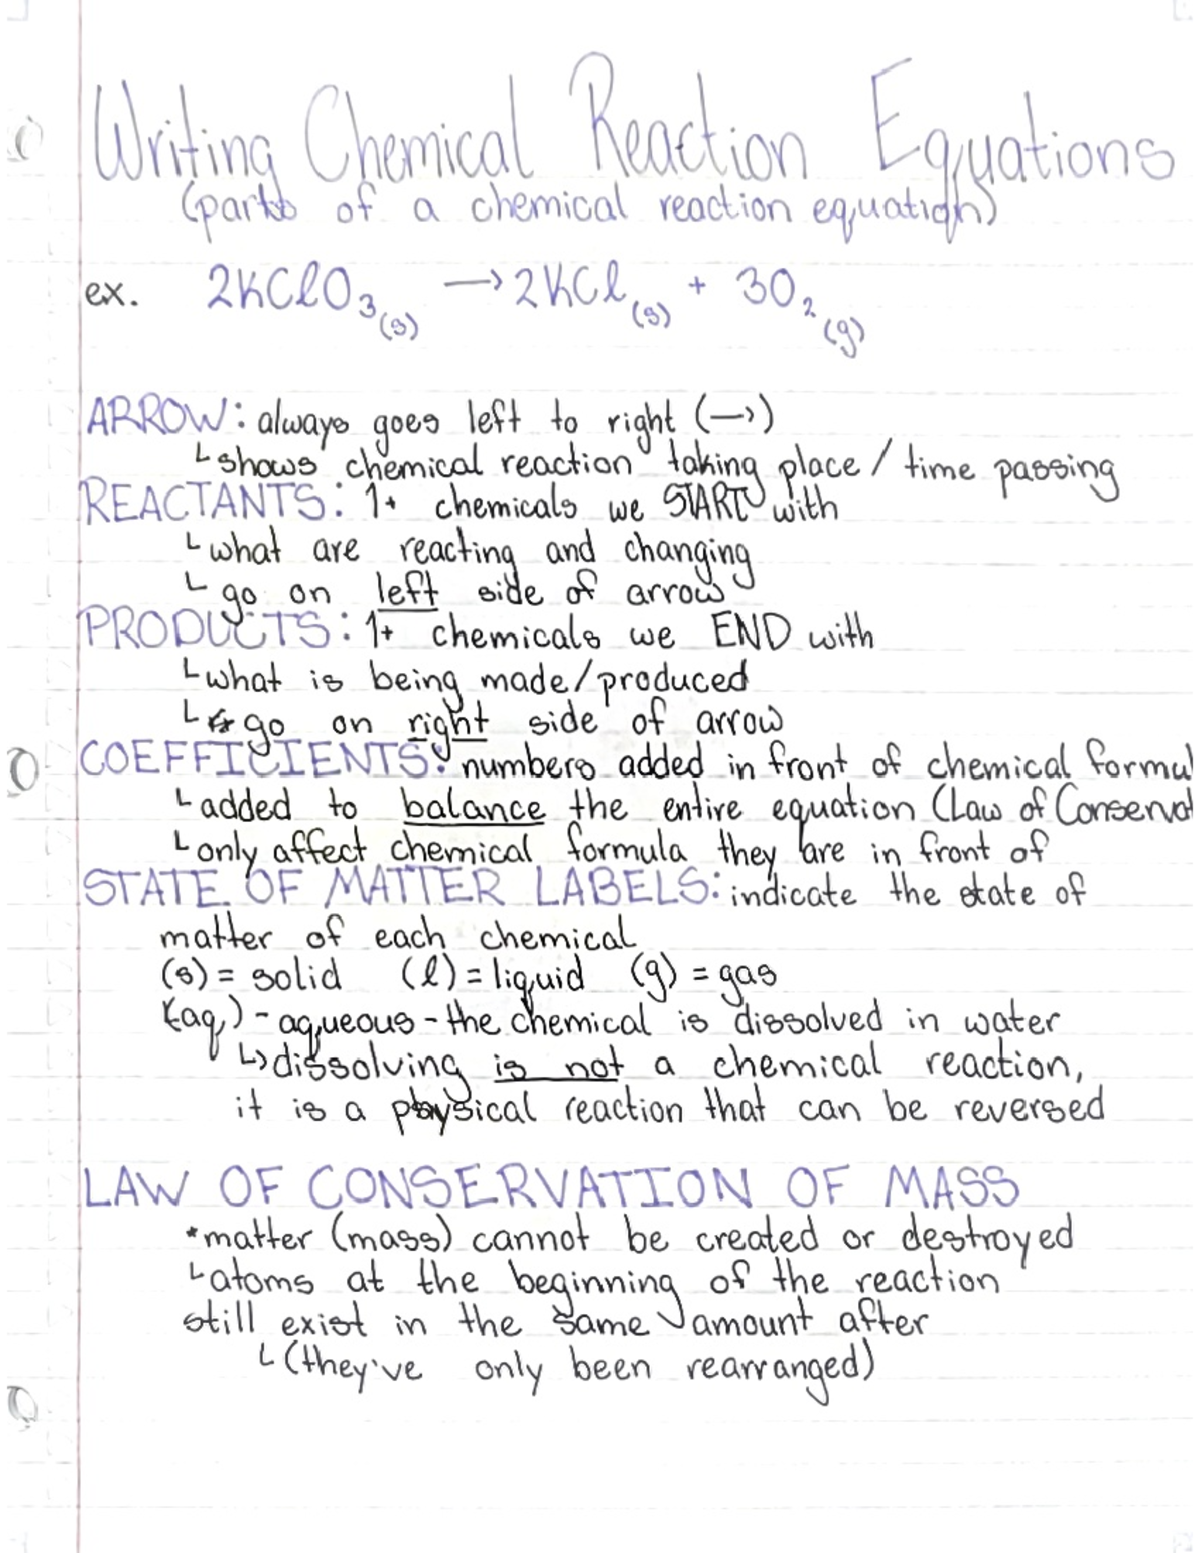 Writing Chemical Reaction Equations
(parts of a chemical reaction equation)
ex. 2KClO₃(s) → 2KCl(s) + 3O₂(g)
ARROW: always goes left to right (→)
└ shows chemical reaction taking place / time passing
REACTANTS: 1+ chemicals we START with
└ what are reacting and changing
└ go on left side of arrow
PRODUCTS: 1+ chemicals we END with
└ what is being made/produced
└ go on right side of arrow
COEFFICIENTS: numbers added in front of chemical formul
└ added to balance the entire equation (Law of Conservat
└ only affect chemical formula they are in front of
STATE OF MATTER LABELS: indicate the state of
matter of each chemical
(s) = solid (l) = liquid (g) = gas
(aq) - aqueous - the chemical is dissolved in water
↳ dissolving is not a chemical reaction,
it is a physical reaction that can be reversed
LAW OF CONSERVATION OF MASS
*matter (mass) cannot be created or destroyed
└ atoms at the beginning of the reaction
still exist in the same amount after
└ (they've only been rearranged)